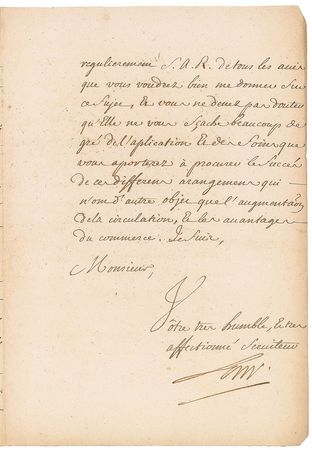 regulierement S. A. R. de tous les avis
que vous voudrez bien me donner sur
ce sujet, et vous ne devez pas douter
qu'Elle ne vous sçache beaucoup de
gré de l'aplication et des soins que
vous aporterez à procurer le succés
de ces differens arangemens qui
n'ont d'autre objet que l'augmentaõn
de la circulation, et les avantages
du commerce. Je suis,
Monsieur,
Vôtre tres humble, et tres
affectionné serviteur